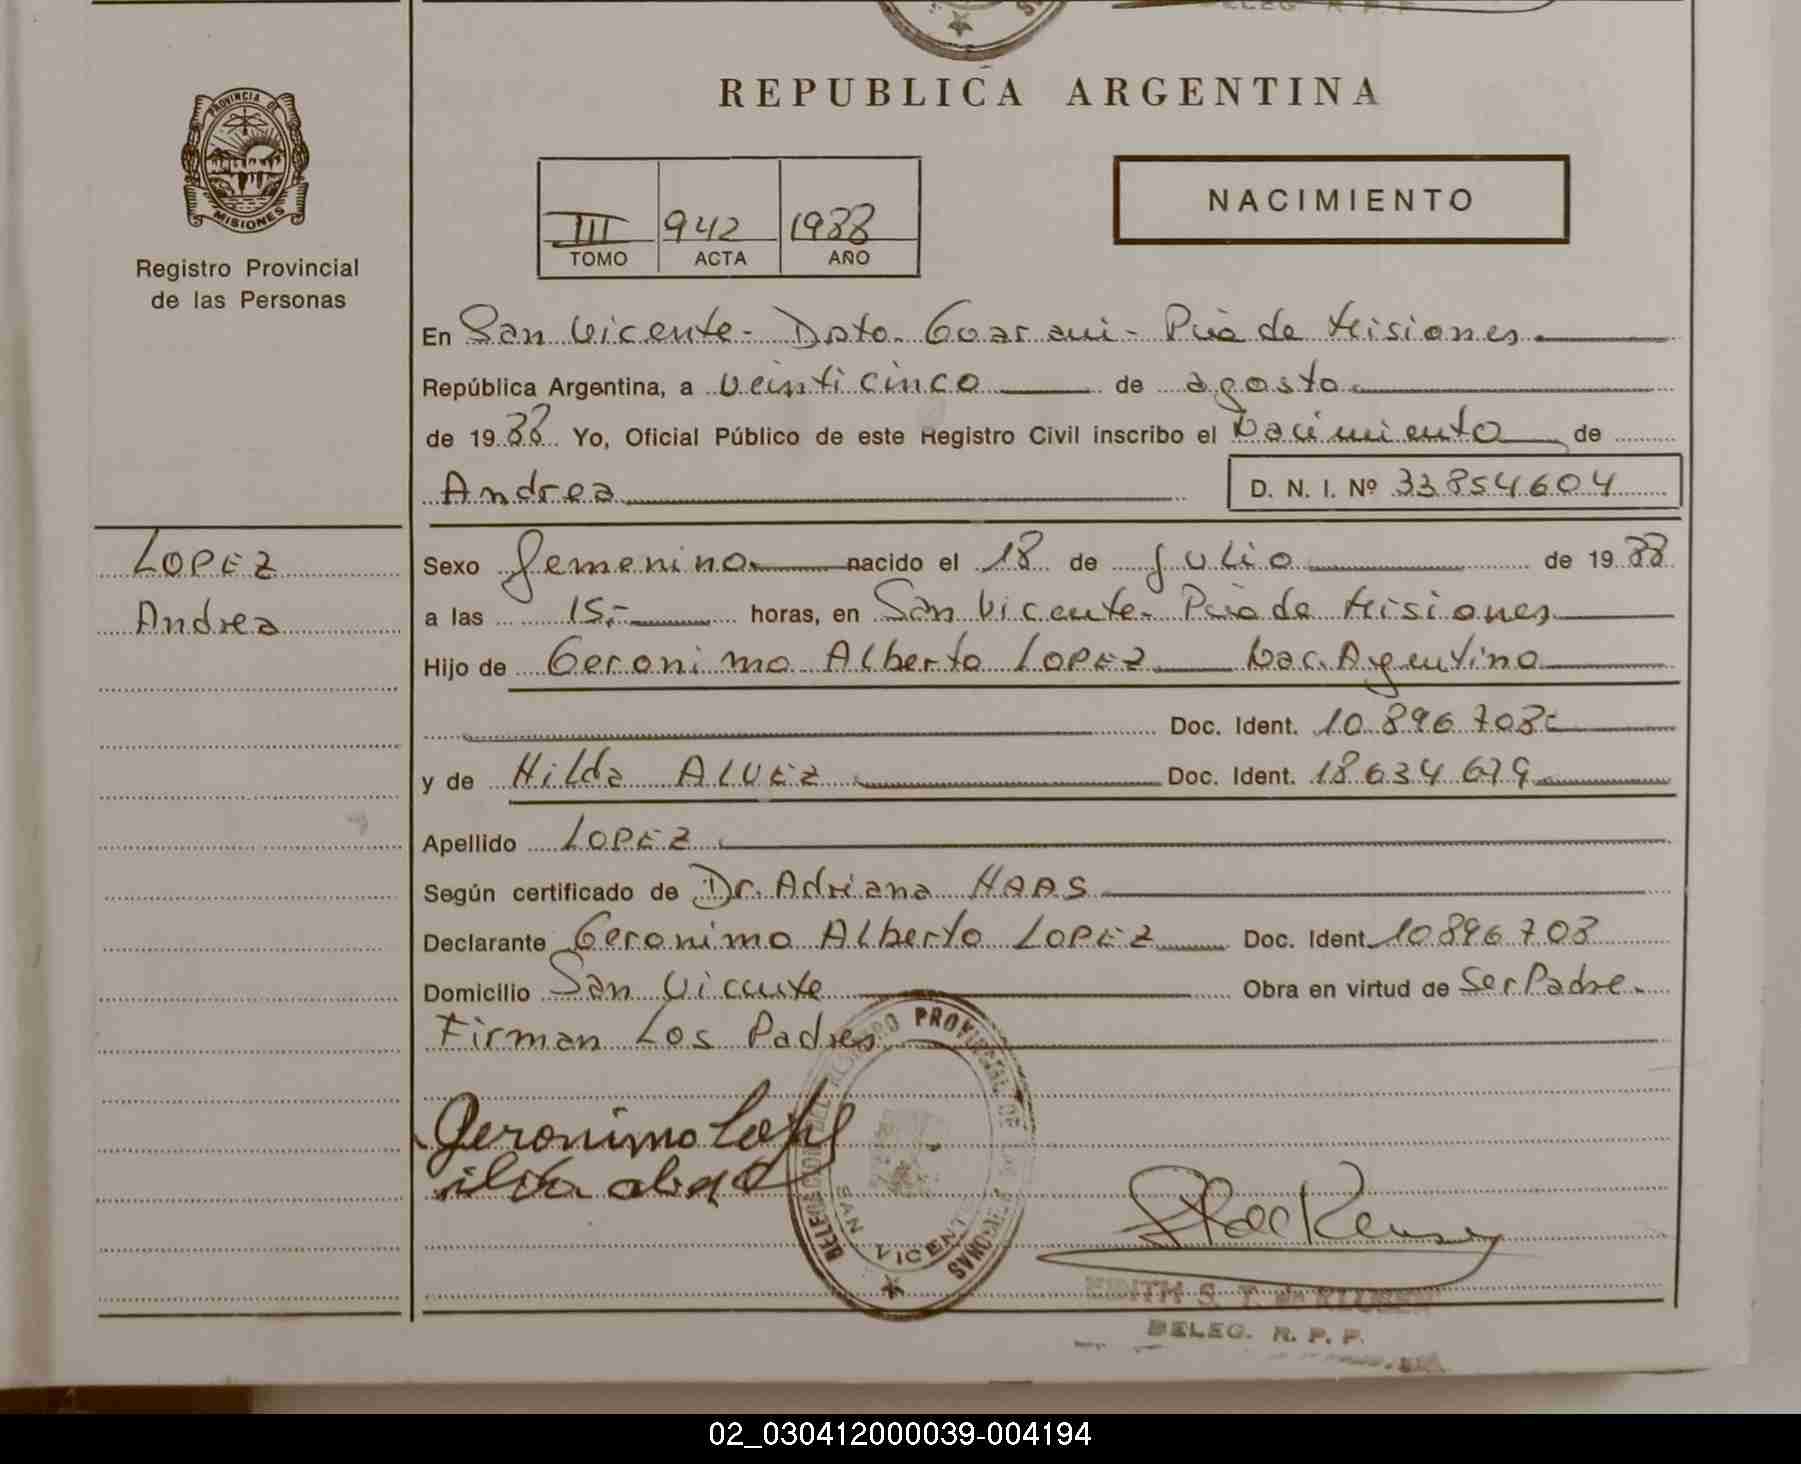 REPUBLICA ARGENTINA
PROVINCIA DE
MISIONES
Registro Provincial
de las Personas
III 942 1988
TOMO ACTA AÑO
NACIMIENTO
En San Vicente - Dpto. Guarani - Pcia de Misiones
República Argentina, a veinticinco de agosto
de 1988 Yo, Oficial Público de este Registro Civil inscribo el Nacimiento de
Andrea D. N. I. Nº 33854604
LOPEZ
Andrea
Sexo femenino nacido el 18 de julio de 1988
a las 15,- horas, en San Vicente - Pcia de Misiones
Hijo de Geronimo Alberto LOPEZ Nac. Argentino
Doc. Ident. 10.896.708
y de Hilda ALVEZ Doc. Ident. 18.634.679
Apellido LOPEZ
Según certificado de Dr. Adriana HAAS
Declarante Geronimo Alberto LOPEZ Doc. Ident. 10896708
Domicilio San Vicente Obra en virtud de Ser Padre.
Firman Los Padres
Geronimo Lopez
DELEGACION DEL REGISTRO PROVINCIAL DE LAS PERSONAS
SAN VICENTE
EDITH S. T. de
DELEG. R. P. P.
02_030412000039-004194